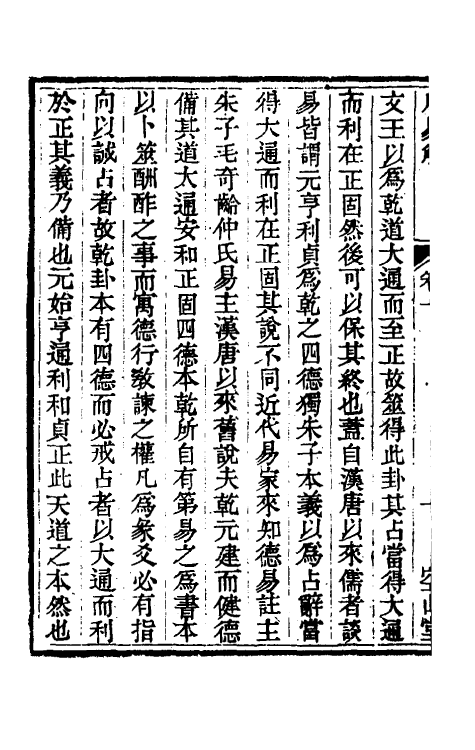 文王以爲乾道大通而至正故筮得此卦其占當得大通
而利在正固然後可以保其終也蓋自漢唐以來儒者談
易皆謂元亨利貞爲乾之四德獨朱子本義以爲占辭當
得大通而利在正固其說不同近代易家來知德易註主
朱子毛奇齡仲氏易主漢唐以來舊說夫乾元建而健德
備其道大通安和正固四德本乾所自有第易之爲書本
以卜筮酬酢之事而寓德行敎諫之權凡爲彖爻必有指
向以誠占者故乾卦本有四德而必戒占者以大通而利
於正其義乃備也元始亨通利和貞正此天道之本然也